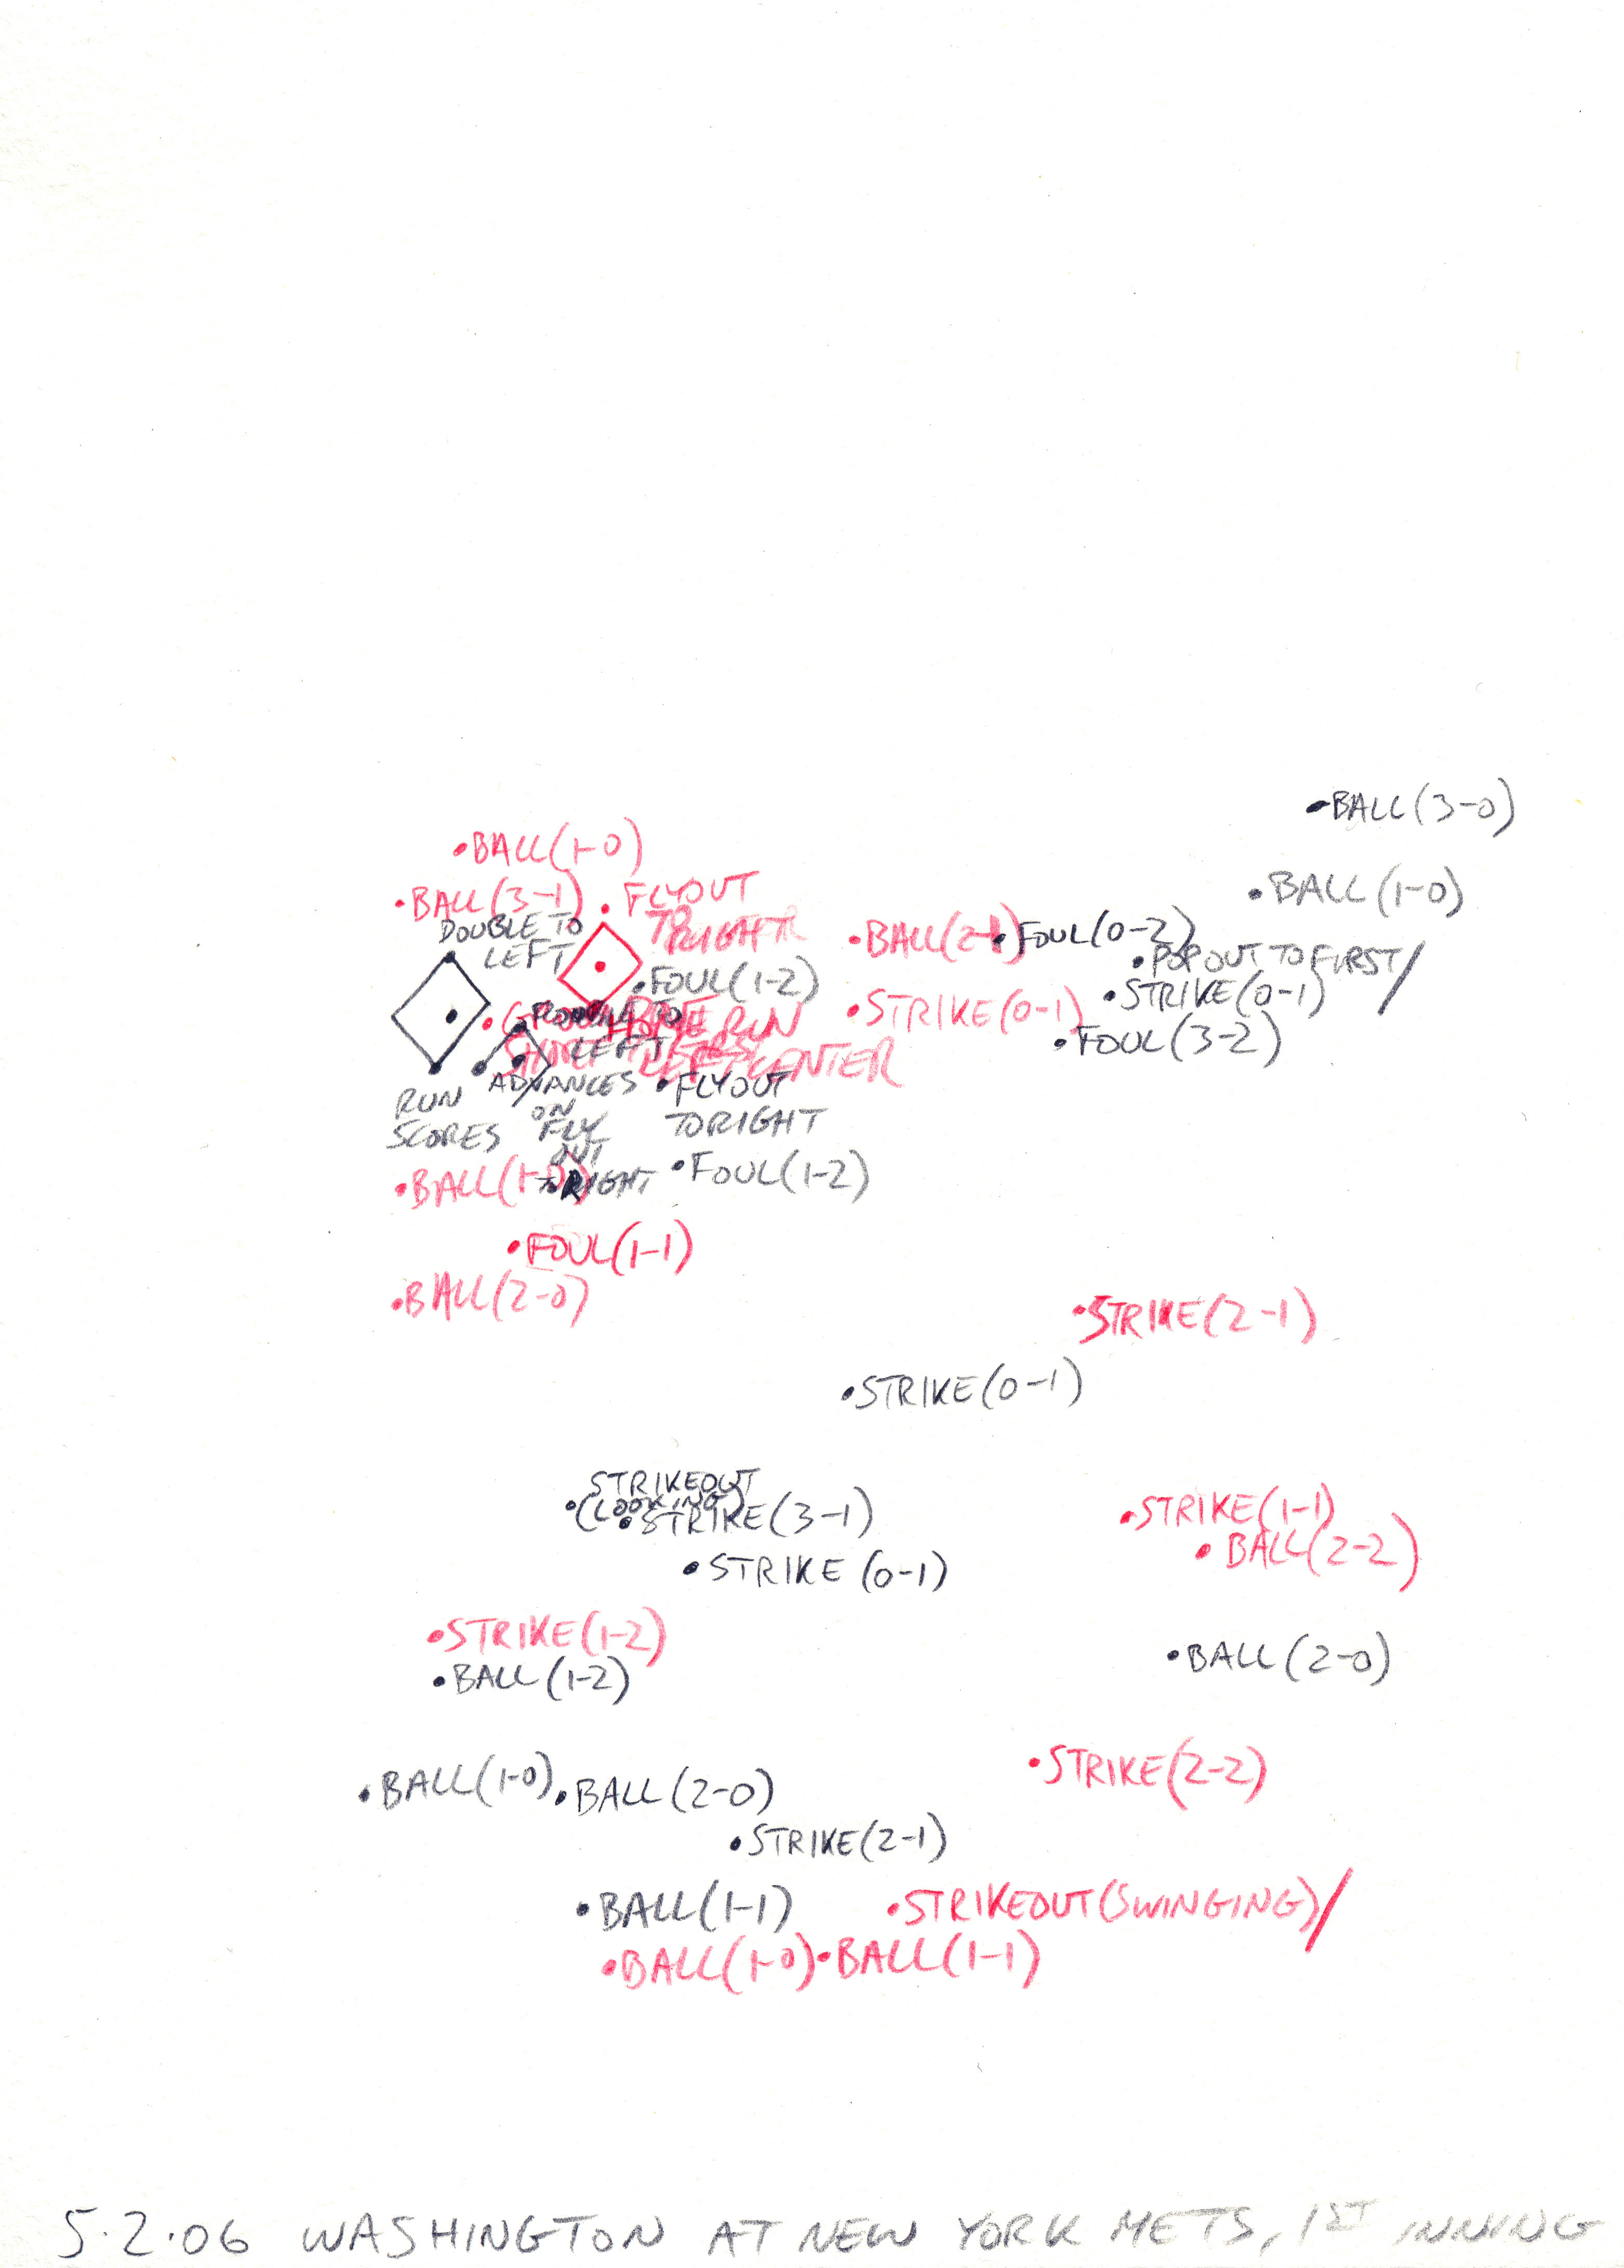 BALL(3-0)
BALL(1-0)
BALL(1-0)
BALL(3-1)
FLYOUT
TO
RIGHT
DOUBLE TO
LEFT
BALL(2-1)
FOUL(0-2)
POPOUT TO FIRST/
FOUL(1-2)
STRIKE(0-1)
STRIKE(0-1)
FOUL(3-2)
HOME RUN
LEFT CENTER
DOUBLE TO
LEFT
RUN
SCORES
ADVANCES
ON
FLY
OUT
TO RIGHT
FLYOUT
TO RIGHT
FOUL(1-2)
BALL(1-0)
FOUL(1-1)
BALL(2-0)
STRIKE(2-1)
STRIKE(0-1)
STRIKEOUT
(LOOKING)
STRIKE(3-1)
STRIKE(1-1)
BALL(2-2)
STRIKE (0-1)
STRIKE(1-2)
BALL(1-2)
BALL(2-0)
STRIKE(2-2)
BALL(1-0)
BALL(2-0)
STRIKE(2-1)
BALL(1-1)
STRIKEOUT(SWINGING)/
BALL(1-0)
BALL(1-1)
5.2.06 WASHINGTON AT NEW YORK METS, 1ST INNING